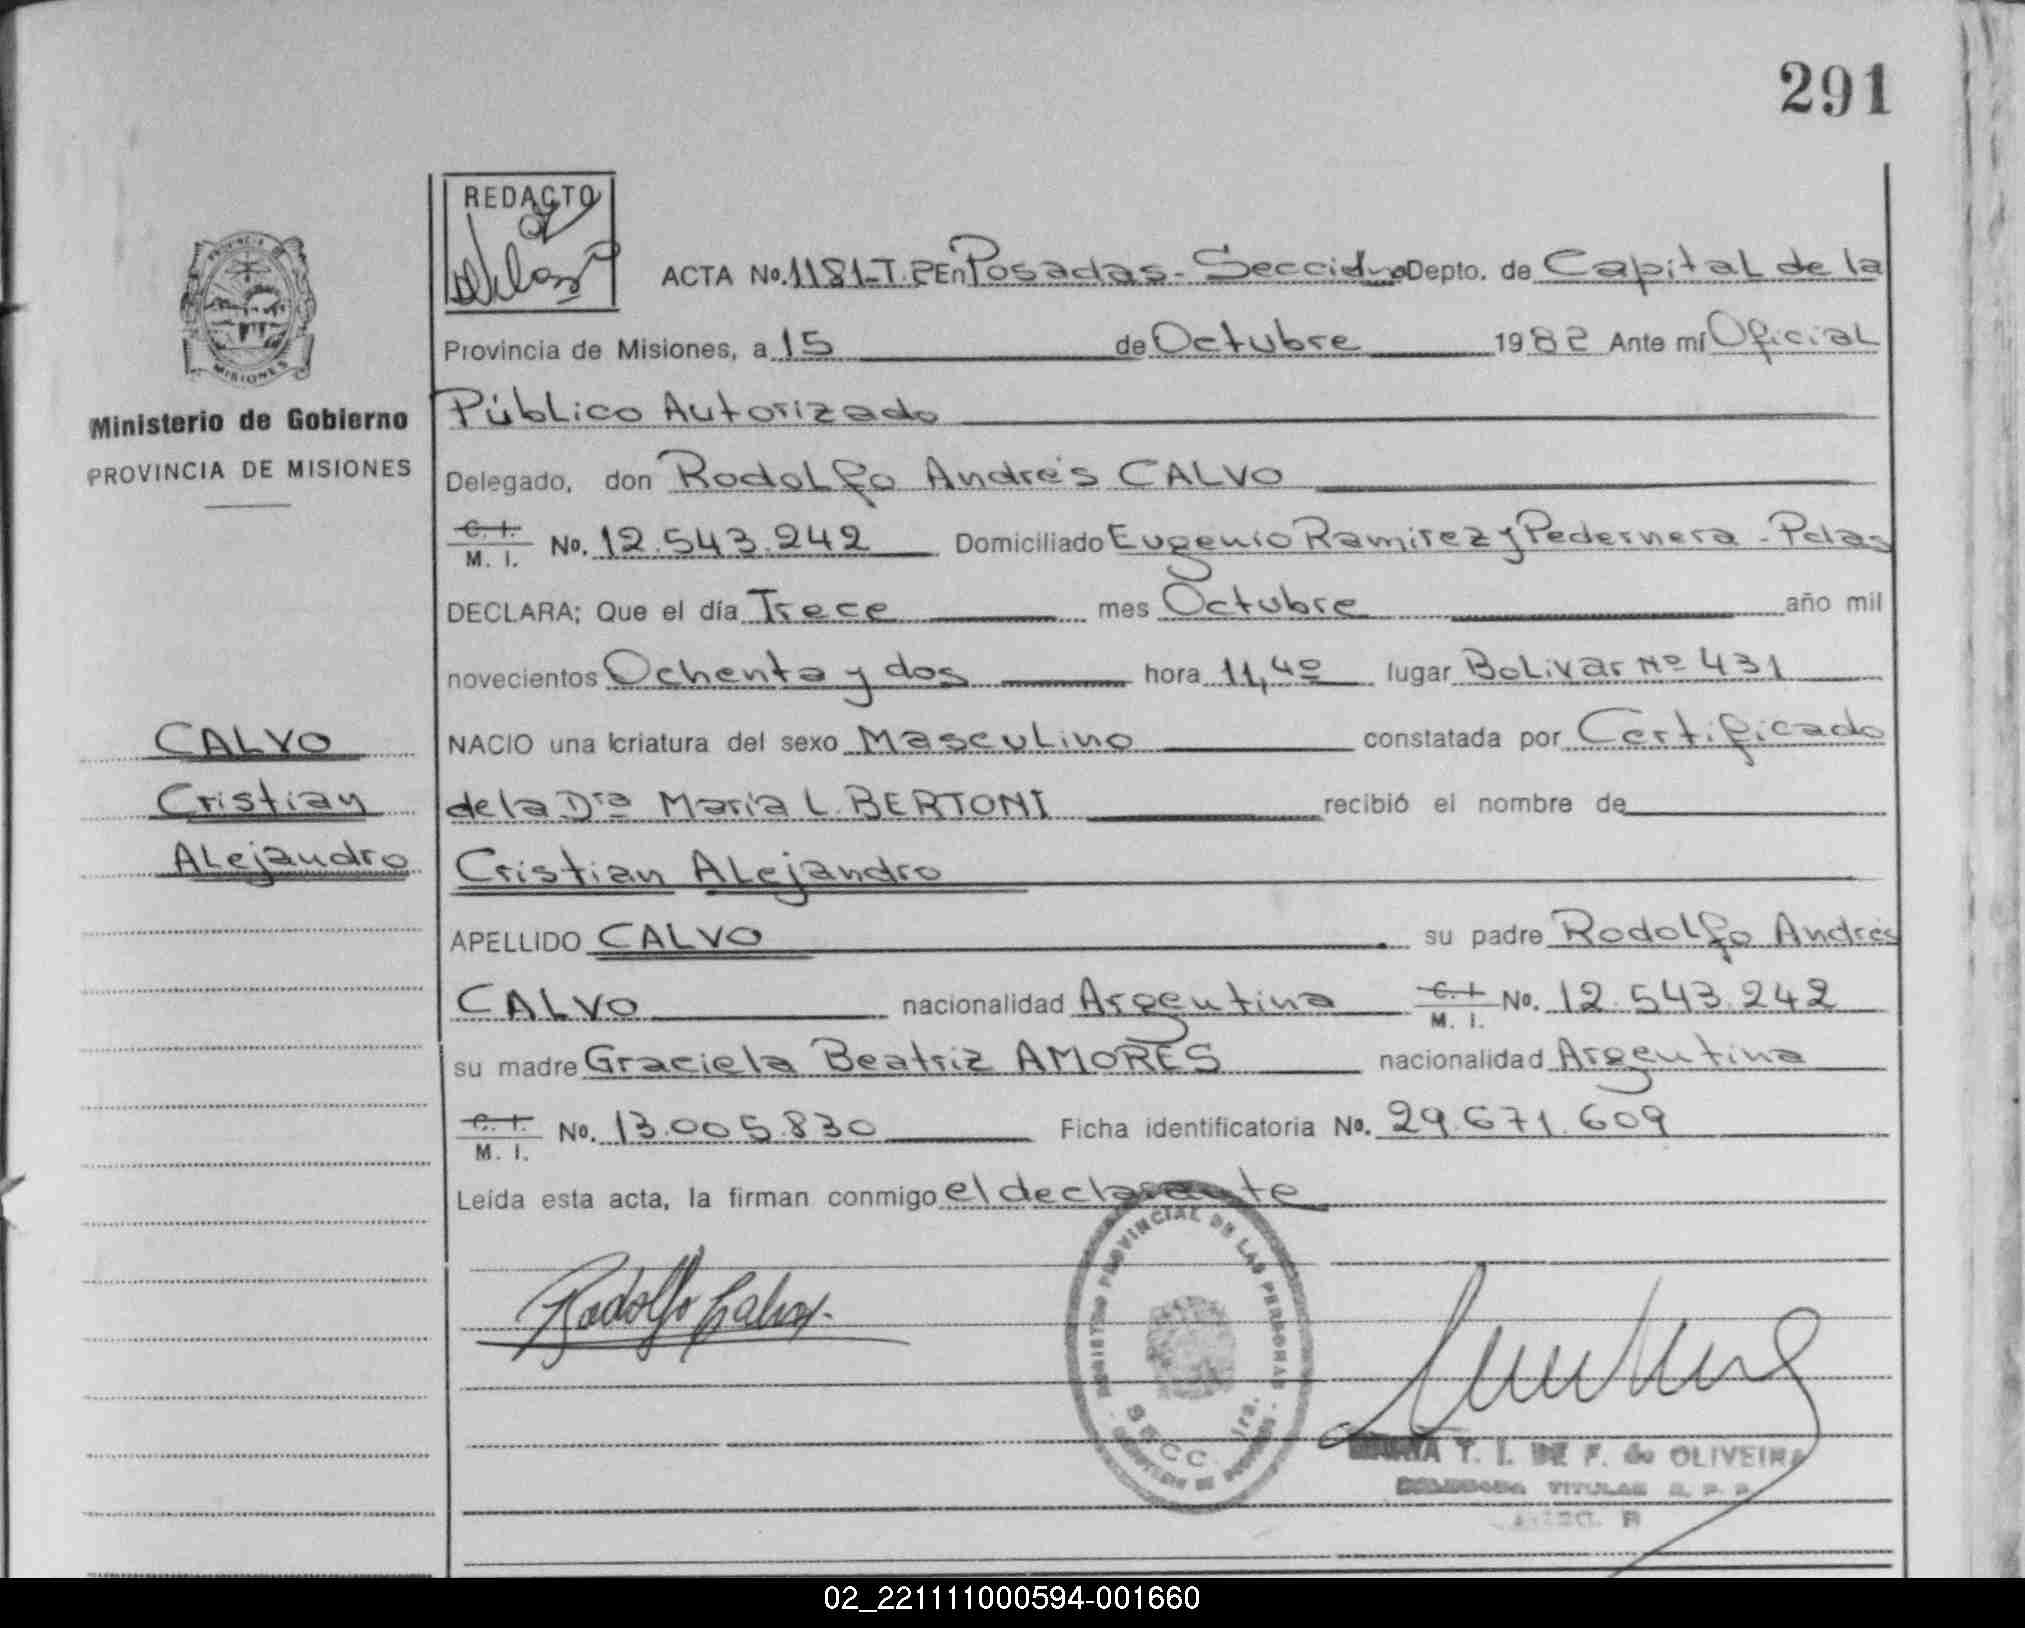 291
REDACTO
ACTA No. 1181-T.P En Posadas - Sección Depto. de Capital de la
Provincia de Misiones, a 15 de Octubre 1982 Ante mí Oficial
Público Autorizado
Ministerio de Gobierno
PROVINCIA DE MISIONES
Delegado, don Rodolfo Andrés CALVO
C. I.
M. I. No. 12.543.242 Domiciliado Eugenio Ramirez y Pedernera - Pdas
DECLARA; Que el día Trece mes Octubre año mil
novecientos Ochenta y dos hora 11,40 lugar Bolivar Nº 431
CALVO
Cristian
Alejandro
NACIO una criatura del sexo Masculino constatada por Certificado
de la Dra María L. BERTONI recibió el nombre de
Cristian Alejandro
APELLIDO CALVO su padre Rodolfo Andrés
CALVO nacionalidad Argentina C. I. M. I. No. 12.543.242
su madre Graciela Beatriz AMORES nacionalidad Argentina
C. I.
M. I. No. 13.005.830 Ficha identificatoria No. 29.671.609
Leída esta acta, la firman conmigo el declarante
Rodolfo Calvo
REGISTRO PROVINCIAL DE LAS PERSONAS
SECC. 1ra.
MARIA T. I. DE F. de OLIVEIRA
DELEGADA TITULAR R. P. P.
02_221111000594-001660